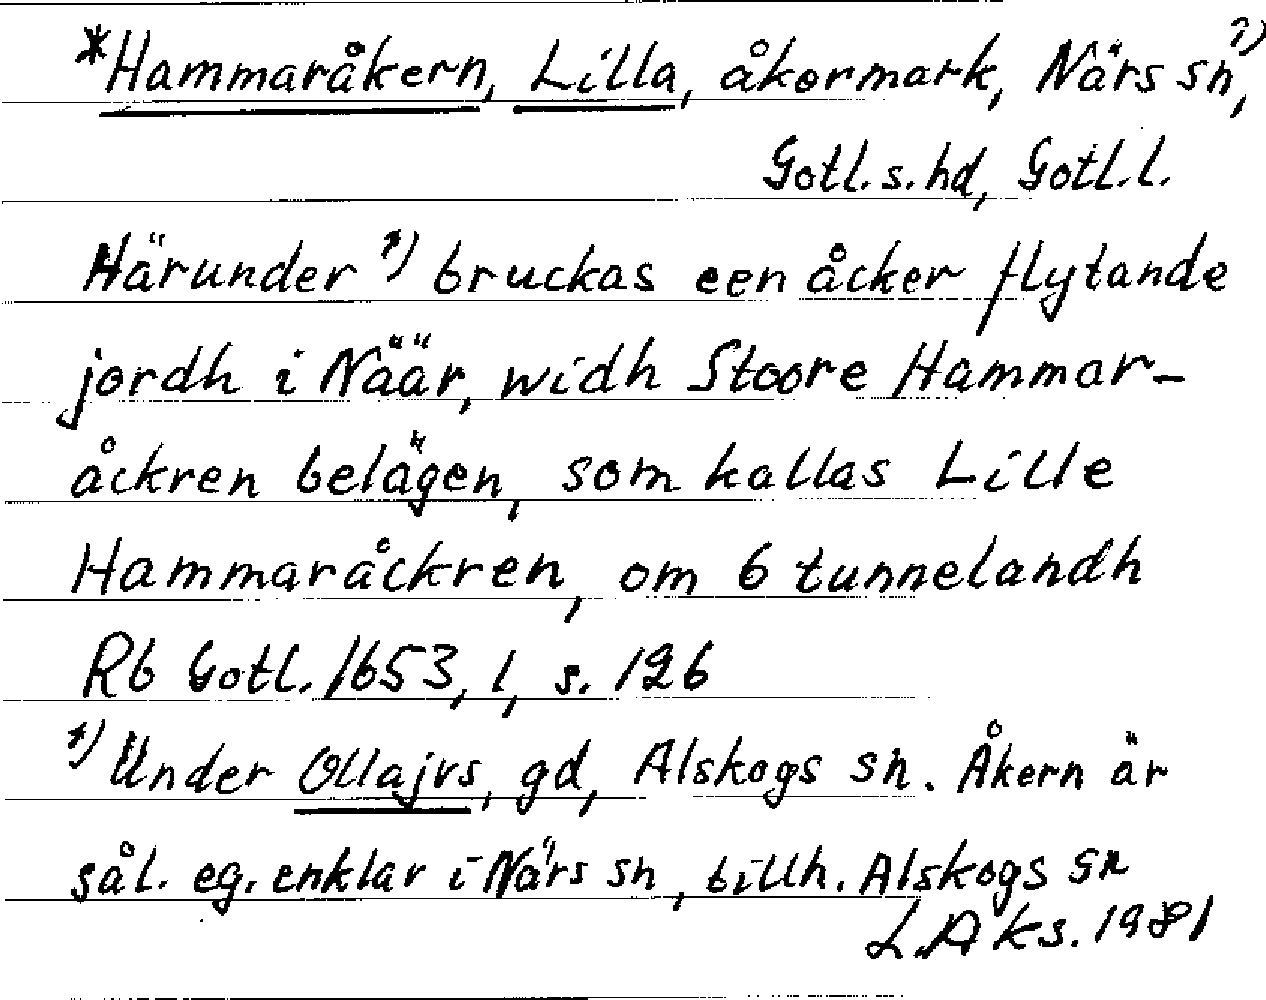 *Hammaråkern, Lilla, åkermark, Närs sn¹⁾,
Gotl. s. hd, Gotl. l.
Härunder ¹⁾ bruckas een åcker flytande
jordh i Näär, widh Stoore Hammar-
åckren belägen, som kallas Lille
Hammaråckren, om 6 tunnelandh
Rb Gotl. 1653, 1, s. 126
¹⁾ Under Ollajvs, gd, Alskogs sn. Åkern är
sål. eg. enklav i Närs sn, tillh. Alskogs sn
1981